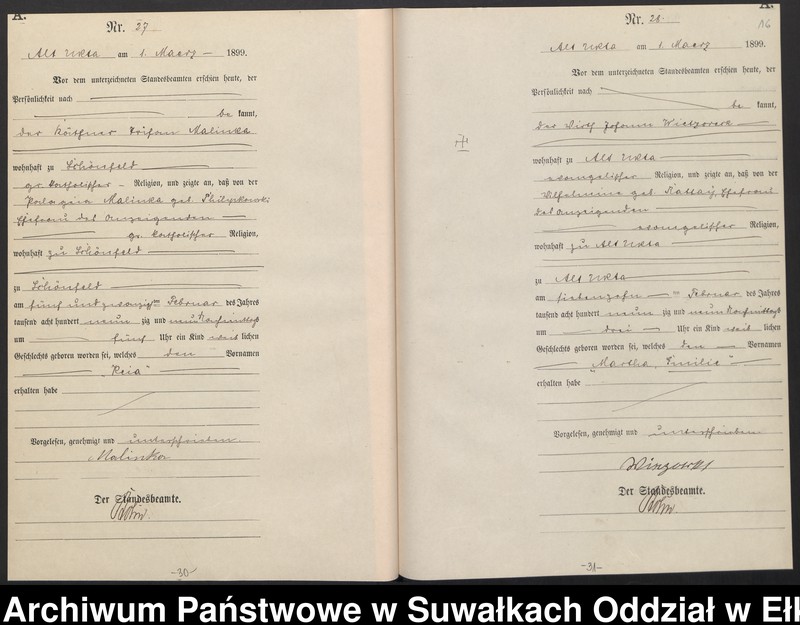 A.
Nr. 27.
Alt Ukta am 1. Maerz 1899.
Vor dem unterzeichneten Standesbeamten erschien heute, der
Persönlichkeit nach
be kannt,
der Köthner Trifan Malinka
wohnhaft zu Schönfeld
gr. katholischer Religion, und zeigte an, daß von der
Malinka geb. Philipkowski
Ehefrau des Anzeigenden
gr. katholischer Religion,
wohnhaft zu Schönfeld
zu Schönfeld
am fünf und zwanzigten Februar des Jahres
tausend acht hundert neun zig und neun Nachmittags
um fünf Uhr ein Kind weib lichen
Geschlechts geboren worden sei, welches den Vornamen
erhalten habe
Vorgelesen, genehmigt und unterschrieben
Malinka
Der Standesbeamte.
-30-
A.
16
Nr. 28.
Alt Ukta am 1. Maerz 1899.
Vor dem unterzeichneten Standesbeamten erschien heute, der
Persönlichkeit nach
be kannt,
der Wirth Johann Wietzorreck
wohnhaft zu Alt Ukta
evangelischer Religion, und zeigte an, daß von der
Wilhelmine geb. Kattay, Ehefrau
des Anzeigenden
evangelischer Religion,
wohnhaft zu Alt Ukta
zu Alt Ukta
am siebenzehn ten Februar des Jahres
tausend acht hundert neun zig und neun Nachmittags
um drei Uhr ein Kind weib lichen
Geschlechts geboren worden sei, welches den Vornamen
„Martha, Emilie"
erhalten habe
Vorgelesen, genehmigt und unterschrieben
Der Standesbeamte.
-31-
Archiwum Państwowe w Suwałkach Oddział w Ełk